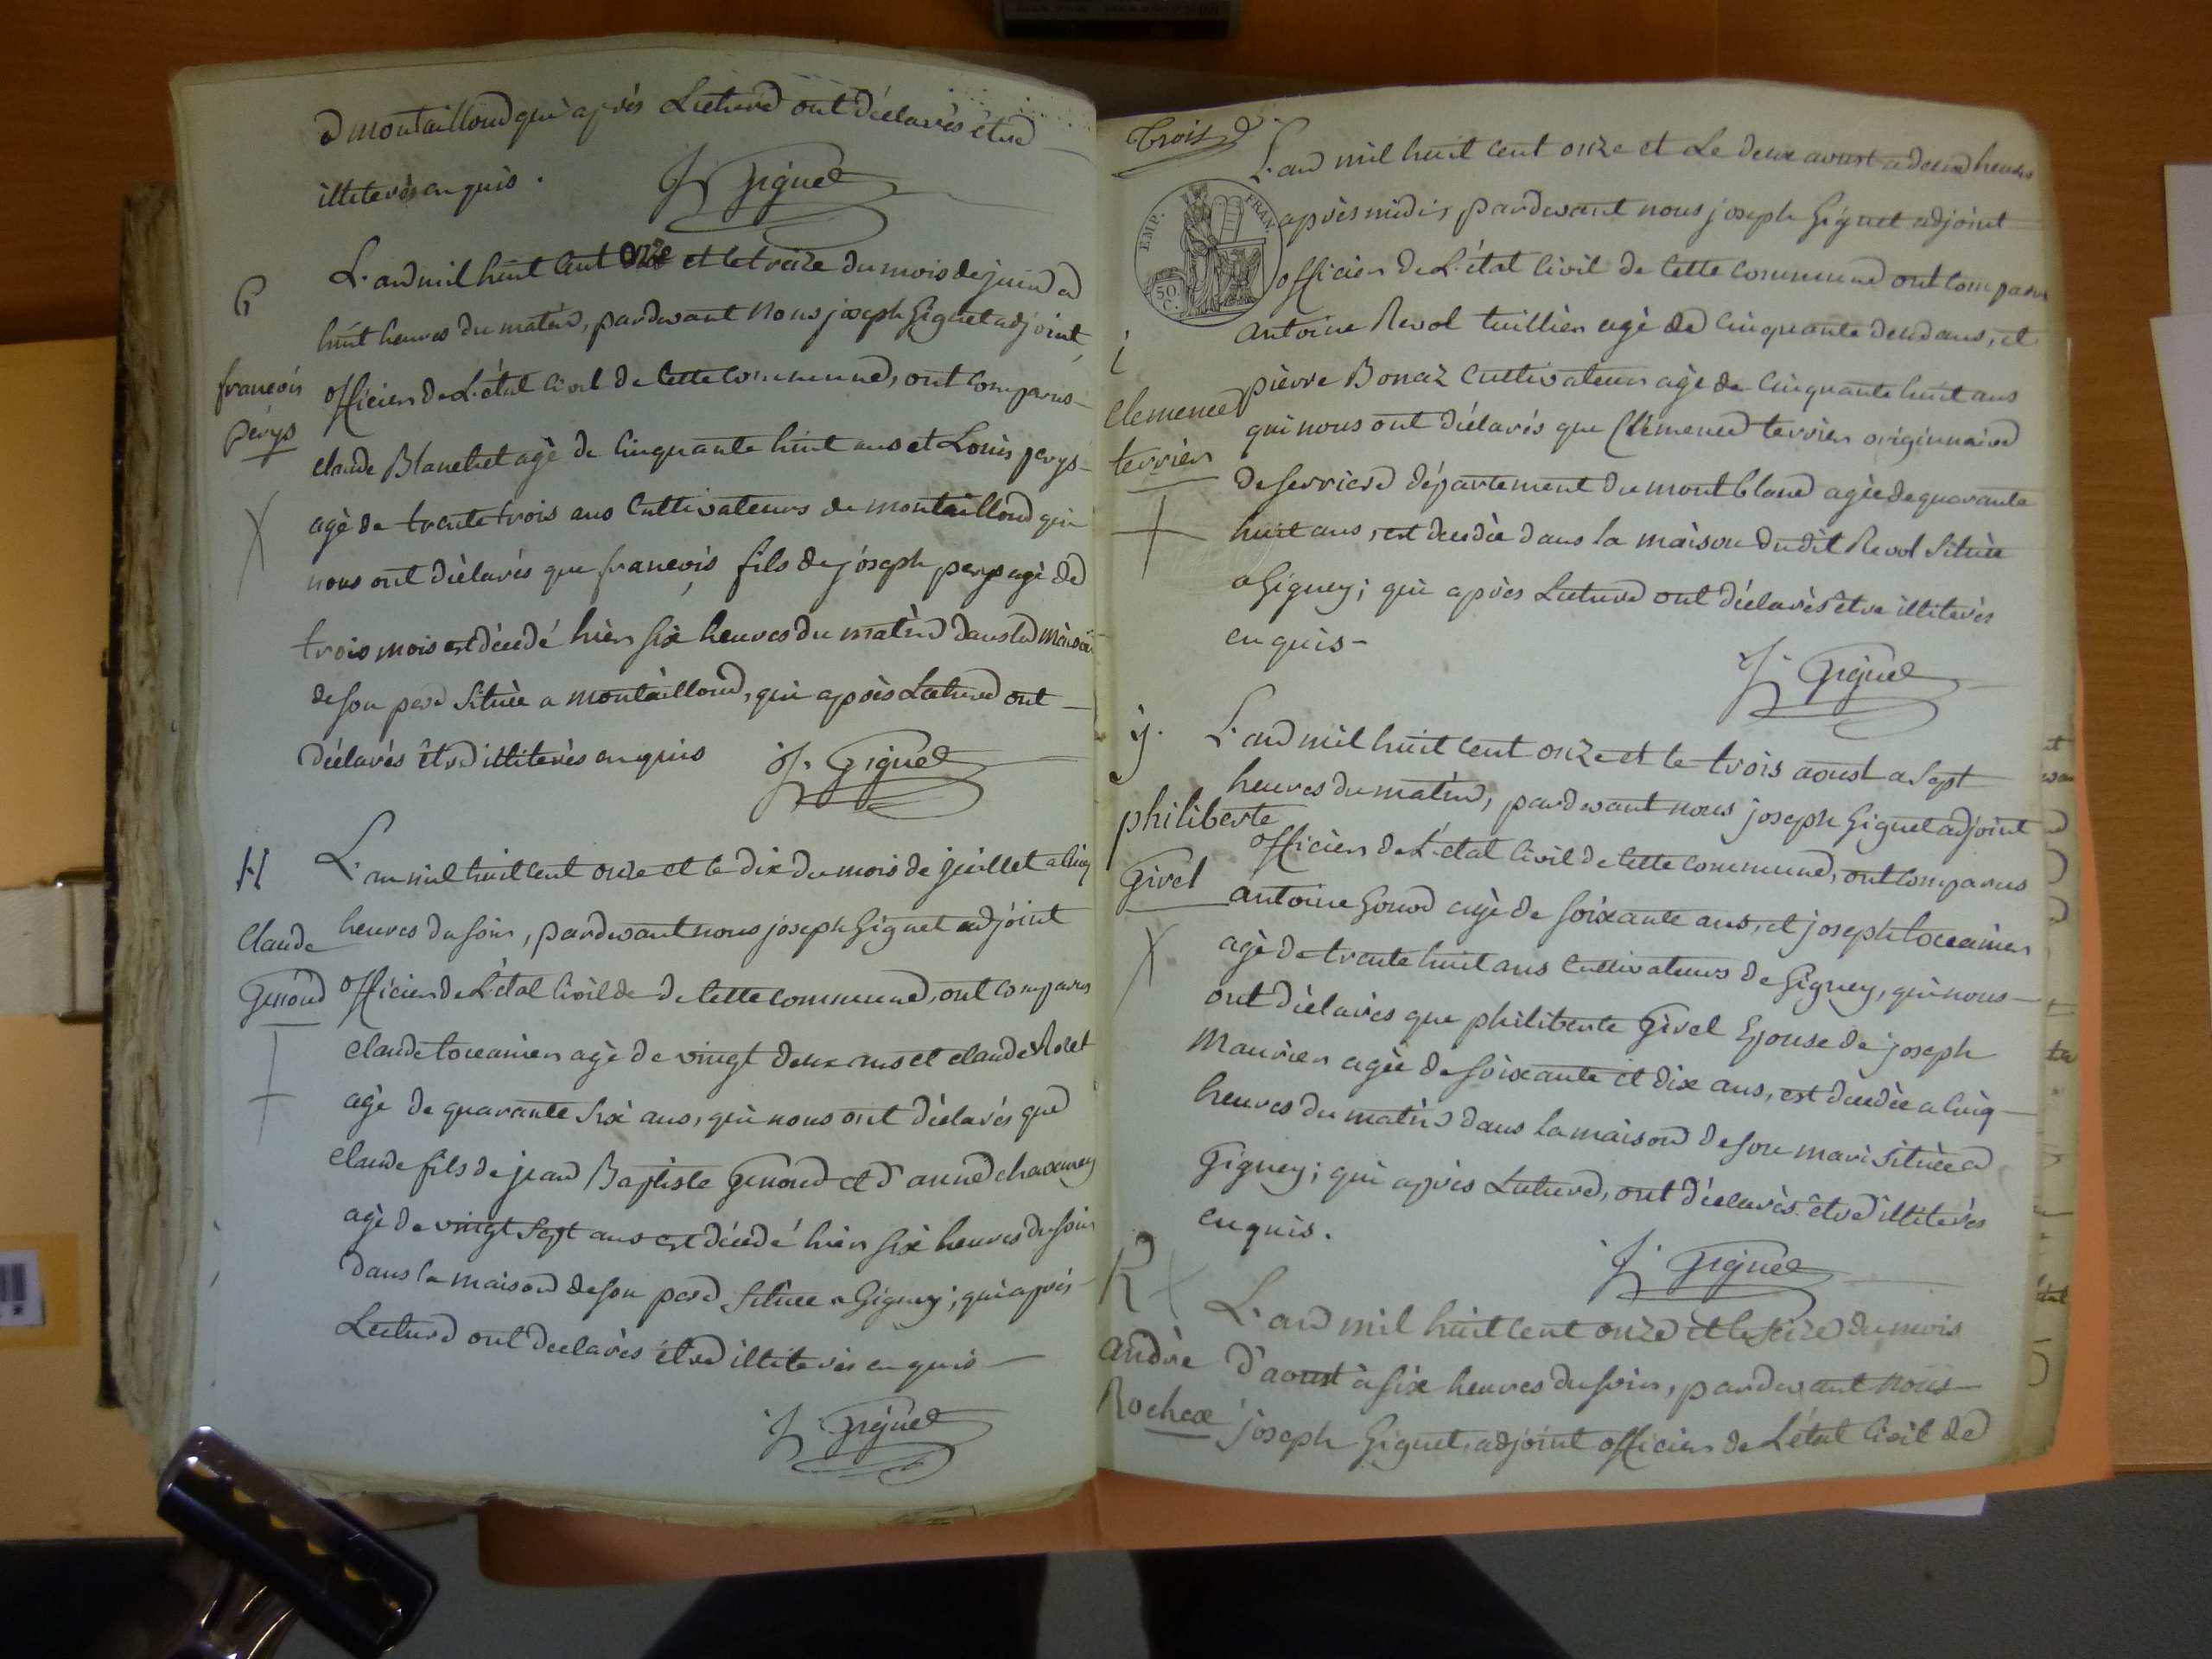 a montailloud qui après Lecture ont déclarés être
illiterés enquis.
J. Giguet
G
françois
perys
L'an mil huit cent onze et le treize du mois de juin a
huit heures du matin, pardevant Nous joseph Giguet adjoint,
officier de L'état civil de cette commune, ont comparus
claude Blanchet agé de cinquante huit ans et Louis perys
agé de trente trois ans cultivateurs de montailloud qui
nous ont déclarés que françois fils de joseph perys agé de
trois mois est décédé hier six heures du matin dans la maison
de son pere située a montailloud, qui après Lecture ont
déclarés être illiterés enquis
J. Giguet
H
Claude
Genoud
L'an mil huit cent onze et le dix du mois de juillet a cinq
heures du soir, pardevant nous joseph Giguet adjoint
officier de L'état civil de de cette commune, ont comparus
claude toccanier agé de vingt deux ans et claude Rolet
agé de quarante six ans, qui nous ont déclarés que
claude fils de jean Baptiste Genoud et d'anne
agé de vingt sept ans est décédé hier six heures du soir
dans la maison de son pere située a Gigney; qui après
Lecture ont declarés être illiterés enquis
J. Giguet
trois
EMP. FRAN.
50 C.
i
clemence
terrier
L'an mil huit cent onze et Le deux aoust a deux heures
après midi, pardevant nous joseph Giguet adjoint
officier de L'état civil de cette commune ont comparus
antoine Revol tuillier agé de cinquante deux ans, et
pierre Bonaz cultivateur agé de cinquante huit ans
qui nous ont déclarés que Clémence terrier originnaire
de serriere département du montblanc agée de quarante
huit ans, est decedée dans la maison dudit Revol Située
a Gigney; qui après Lecture ont déclarés être illiterés
enquis -
J. Giguet
j.
philiberte
Girel
L'an mil huit cent onze et le trois aoust a Sept
heures du matin, pardevant nous joseph Giguet adjoint
officier de L'état civil de cette commune, ont comparus
antoine agé de soixante ans, et joseph tocanier
agé de trente huit ans cultivateurs de Gigney, qui nous
ont déclarés que philiberte Girel Epouse de joseph
Maurier agée de soixante et dix ans, est decedée a cinq
heures du matin dans la maison de son mari située a
Gigney; qui après Lecture, ont déclarés être illiterés
enquis.
J. Giguet
K
andré
Rochex
L'an mil huit cent onze et le seize du mois
d'aoust à six heures du soir, pardevant nous
joseph Giguet, adjoint officier de L'état civil de